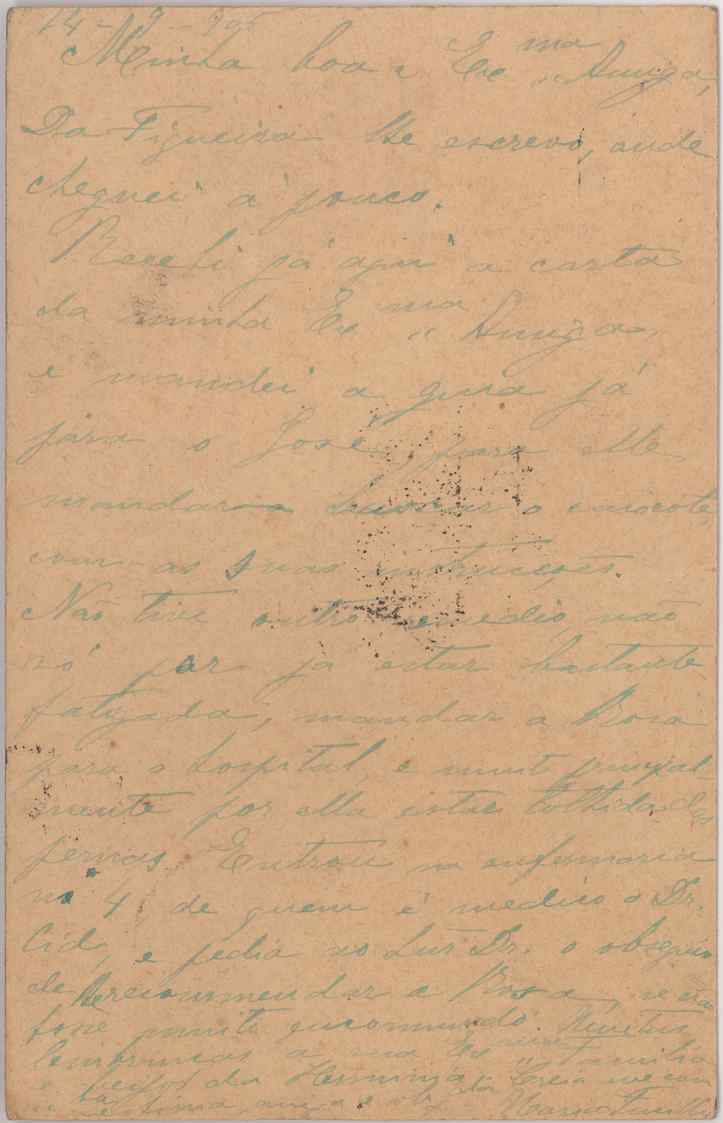 14-9-905
Minha boa e Ex.ma Amiga,
Da Figueira lhe escrevo, onde
cheguei á pouco.
Recebi já aqui a carta
da minha Ex.ma Amiga,
e mandei a guia já
para o José, para elle
mandar buscar o caixote,
com as suas instrucções.
Não tive outro remedio, não
só por já estar bastante
fatigada, mandar a Rosa
para o hospital, e muito principal-
mente por ella estar tolhida das
pernas. Entrou na enfermaria
nº 4 de quem é medico o Dr.
Cid, e pedia ao Snr Dr. o obsequio
de recommendar a Rosa, se não
fosse muito encommodo. Muitas
lembranças a sua Ex.ma familia
e beijos da Herminia. Creia me com
estima, amiga e obr.